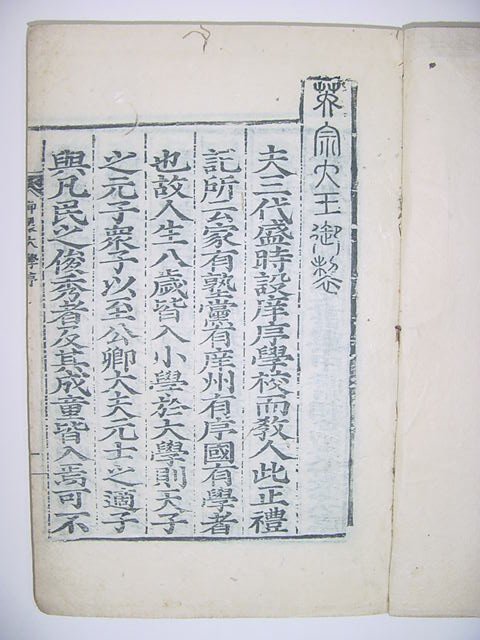 英宗大王御製
夫三代盛時設庠序學校而教人此正禮
記所云家有塾黨有庠州有序國有學者
也故人生八歲皆入小學於大學則天子
之元子衆子以至公卿大夫元士之適子
與凡民之俊秀者及其成童皆入焉可不
御製大學序